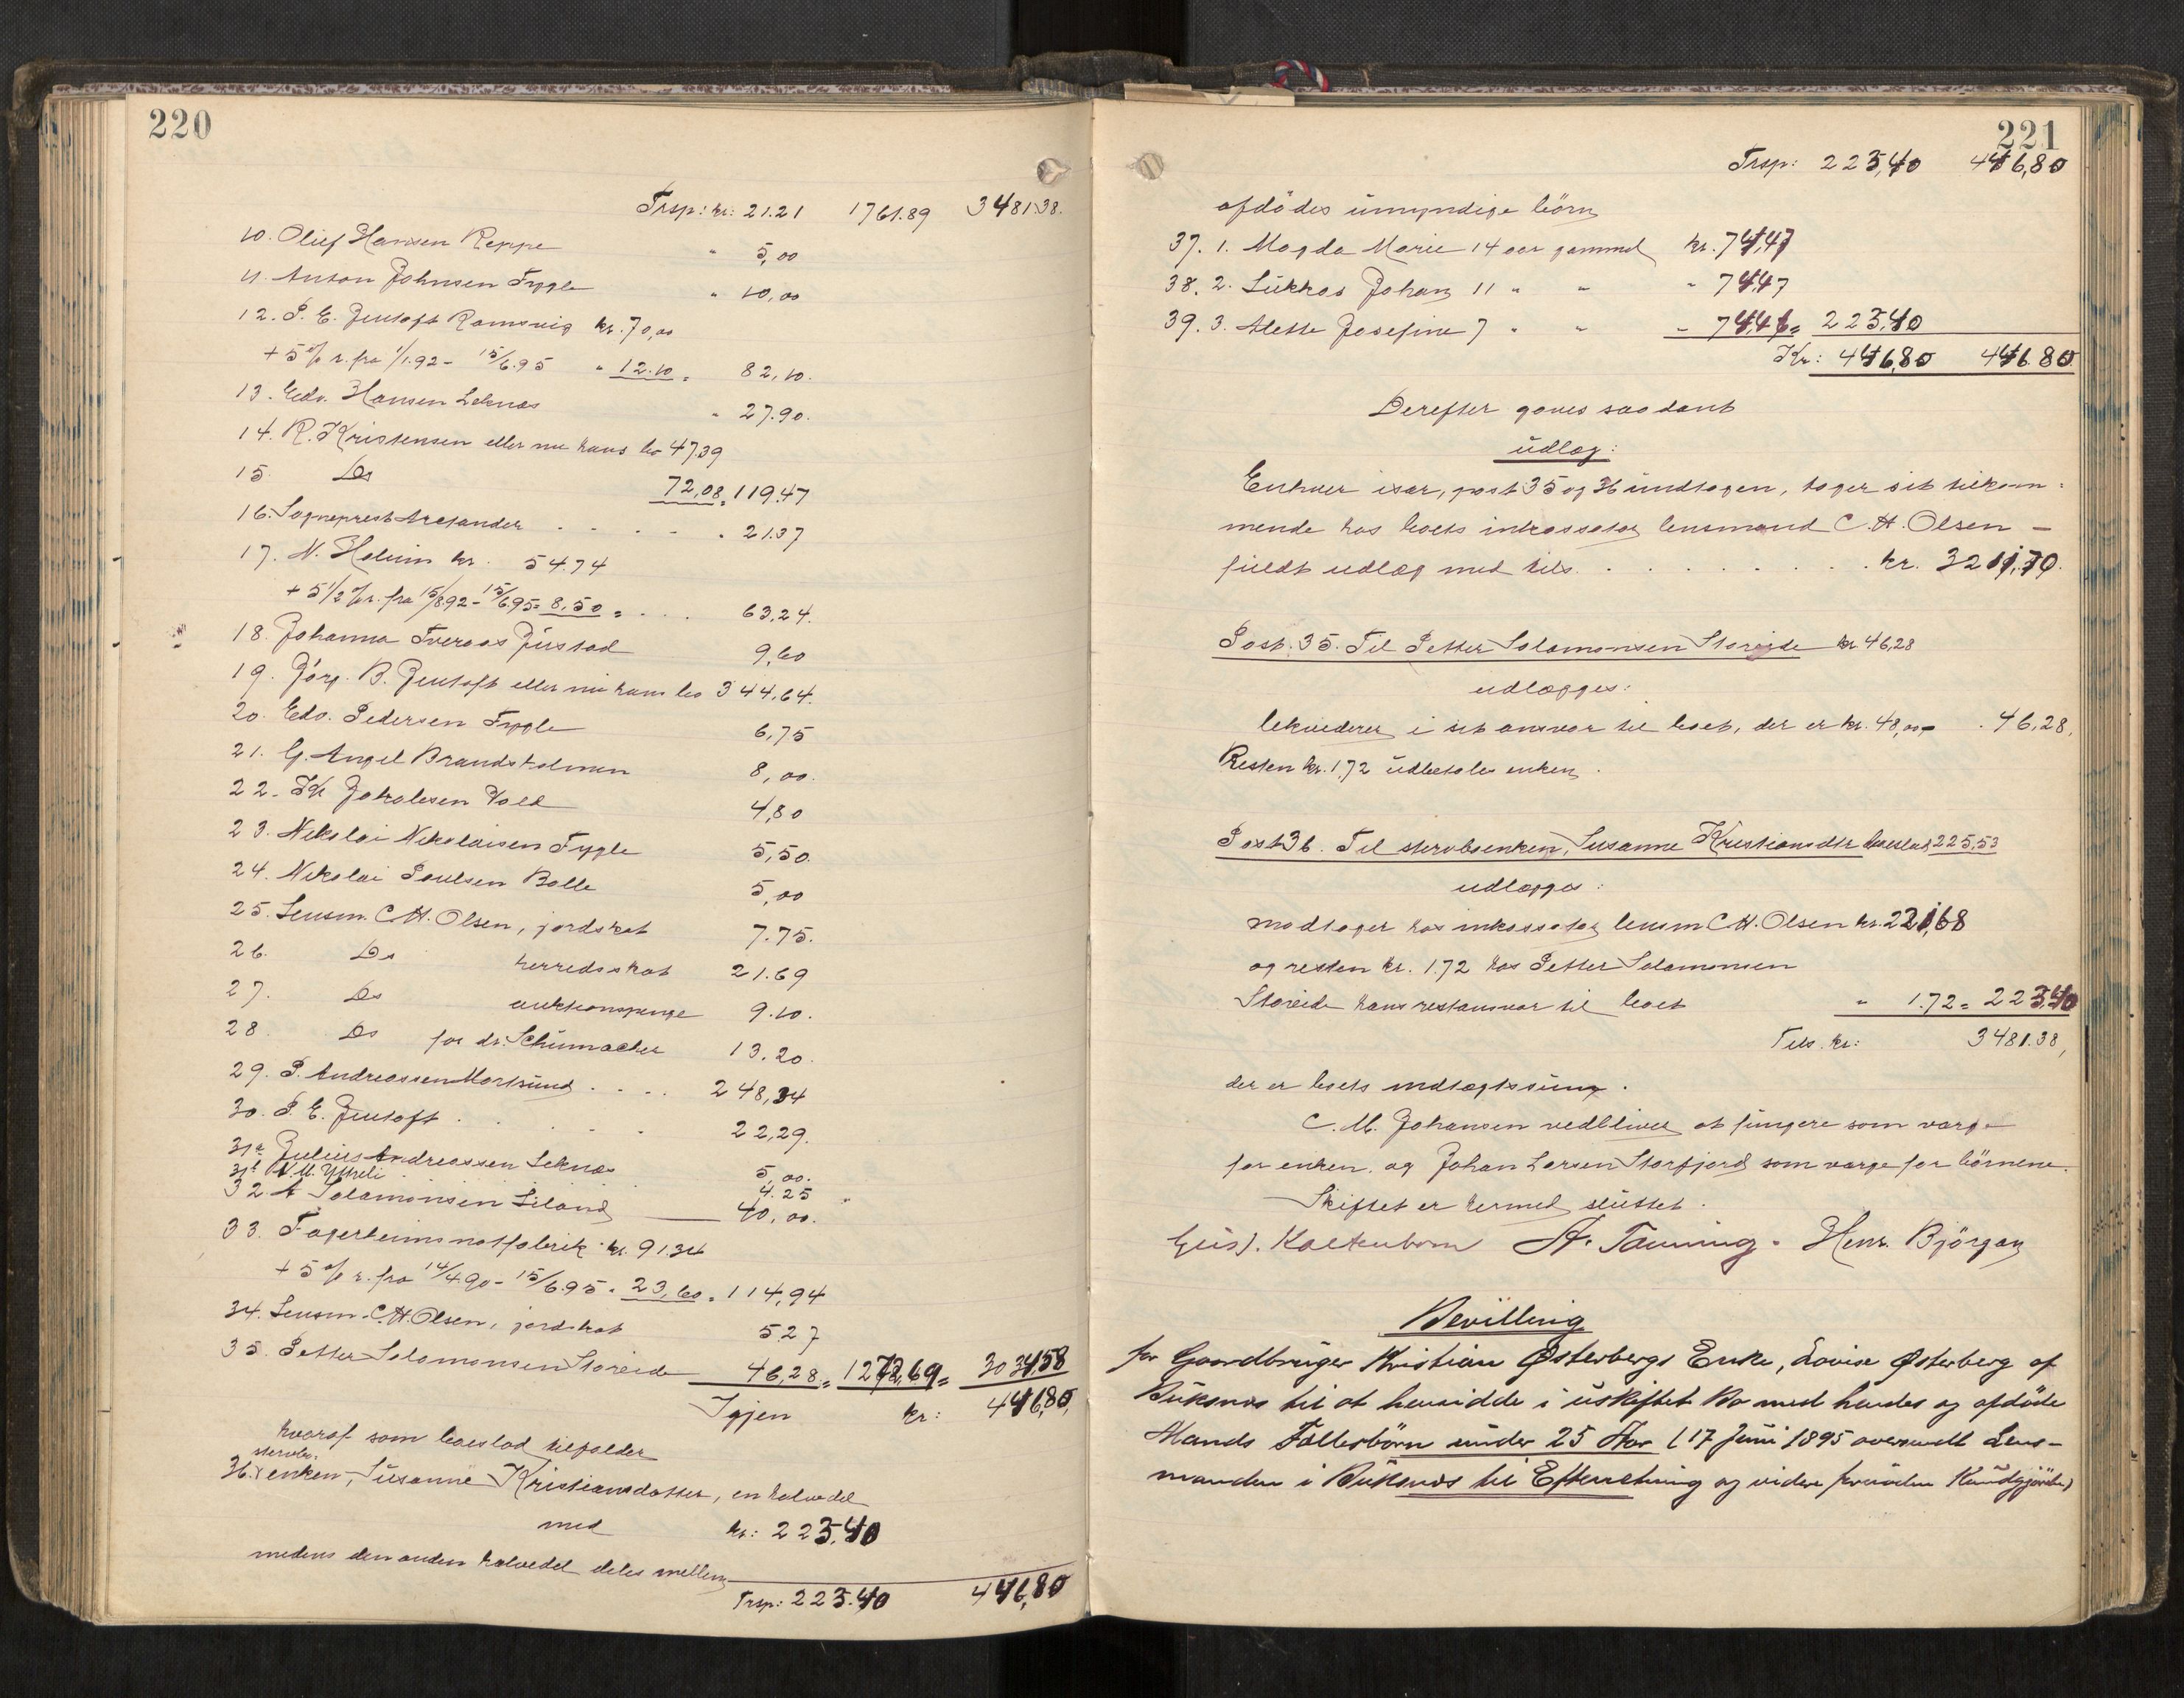 220
Trsp: kr: 21.21 1761.89 3481.38.
10. Oluf Hansen Reppe " 5,00
11. Anton Johnsen Fygle " 10,00
12. P. E. Jentoft Ramsvig kr. 70,00
+ 5 % r. fra 1/1.92 - 15/6.95 " 12.10 = 82,10.
13. Edv. Hansen Leknæs " 27.90.
14. R. Kristensen eller nu hans bo 47.39
15. Do 72,08 = 119.47
16. Sogneprest Arctander . . . . 21.37
17. N. Holum kr. 54.74
+ 5 1/2 % r. fra 15/8.92 - 15/6.95 = 8,50 = . . . 63,24.
18. Johanna Tveraas Justad 9,60
19. Jörg. B. Jentoft eller nu hans bo 344,64.
20. Edv. Pedersen Fygle 6,75
21. G. Angel Brandsholmen 8,00.
22. Johalesen Vold 4,80
23. Nikolai Nikolaisen Fygle 5,50.
24. Nikolai Poulsen Bolle 5,00
25. Lensm. C. H. Olsen, jordskat 7.75.
26. Do herredsskat 21.69
27. Do auktionspenge 9.10.
28 Do for dr. Schumacher 13.20.
29. P. Andreassen Mortsund . . . . 248,34
30. P. E. Jentoft . . . . 22,29.
31a Julius Andreassen Leknæs 5,00.
31b N. M. Yttreli 4.25
32. A Salamonsen Liland 40,00.
33. Fagerheims notfabrik kr. 91.34
+ 5 % r. fra 14/4.90 - 15/6.95 . 23,60 = 114,94
34. Lensm. C. H. Olsen, jordskat 5.27
35. Petter Salamonsen Storeide 46,28 = 1272,69 = 3034,58
Igjen kr: 446,80,
hvoraf som boeslod tilfalder
stervbo.
36. enken, Susanne Kristiansdatter, en halvdel
med kr: 223.40
medens den anden halvdel deles mellem
Trsp: 223.40 446,80
221
Trsp: 223,40 446,80
afdödes umyndige börn
37. 1. Magda Marie 14 aar gammel kr. 74,47
38. 2. Lukkas Johan 11 " " " 74,47
39. 3. Alette Josefine 7 " " " 74,46 = 223,40
Kr: 446,80 446.80
Derefter gaves saadant
udlæg:
Enhver især, post 35 og 36 undtagen, tager sit tilkom-
mende hos boets inkassator lensmand C. H. Olsen -
fuldt udlæg med tils. . . . . . . . . kr. 3211,70.
Post. 35. Til Petter Salamonsen Storeide kr. 46,28
udlægges:
lekviderer i sit ansvar til boet, der er kr. 48,00 - . 46,28,
Resten kr. 1.72 udbetales enken.
Post 36. Til stervboenken, Susanne Kristiansdtr boeslod 225,53
udlægges:
modtager hos inkassator lensm C. H. Olsen kr. 221,68
og resten kr. 1.72 hos Petter Salamonsen
Storeide hans restansvar til boet " 1.72 = 223,40
Tils. kr: 3481.38,
der er boets indtægtssum.
C. M. Johansen vedbliver at fungere som værge
for enken, og Johan Larsen Storfjord som værge for börnene.
Skiftet er hermed sluttet.
Gust. Kaltenborn A. Tanning. Henr. Björgan
Bevilling
for Gaardbruger Kristian Østerbergs Enke, Lovise Østerberg af
Buksnæs til at hensidde i uskiftet Bo med hendes og afdöde
Mands Fællesbörn under 25 Aar (17 Juni 1895 oversendt Lens-
manden i Buksnæs til Efterretning og videre fornöden Kundgjörelse)